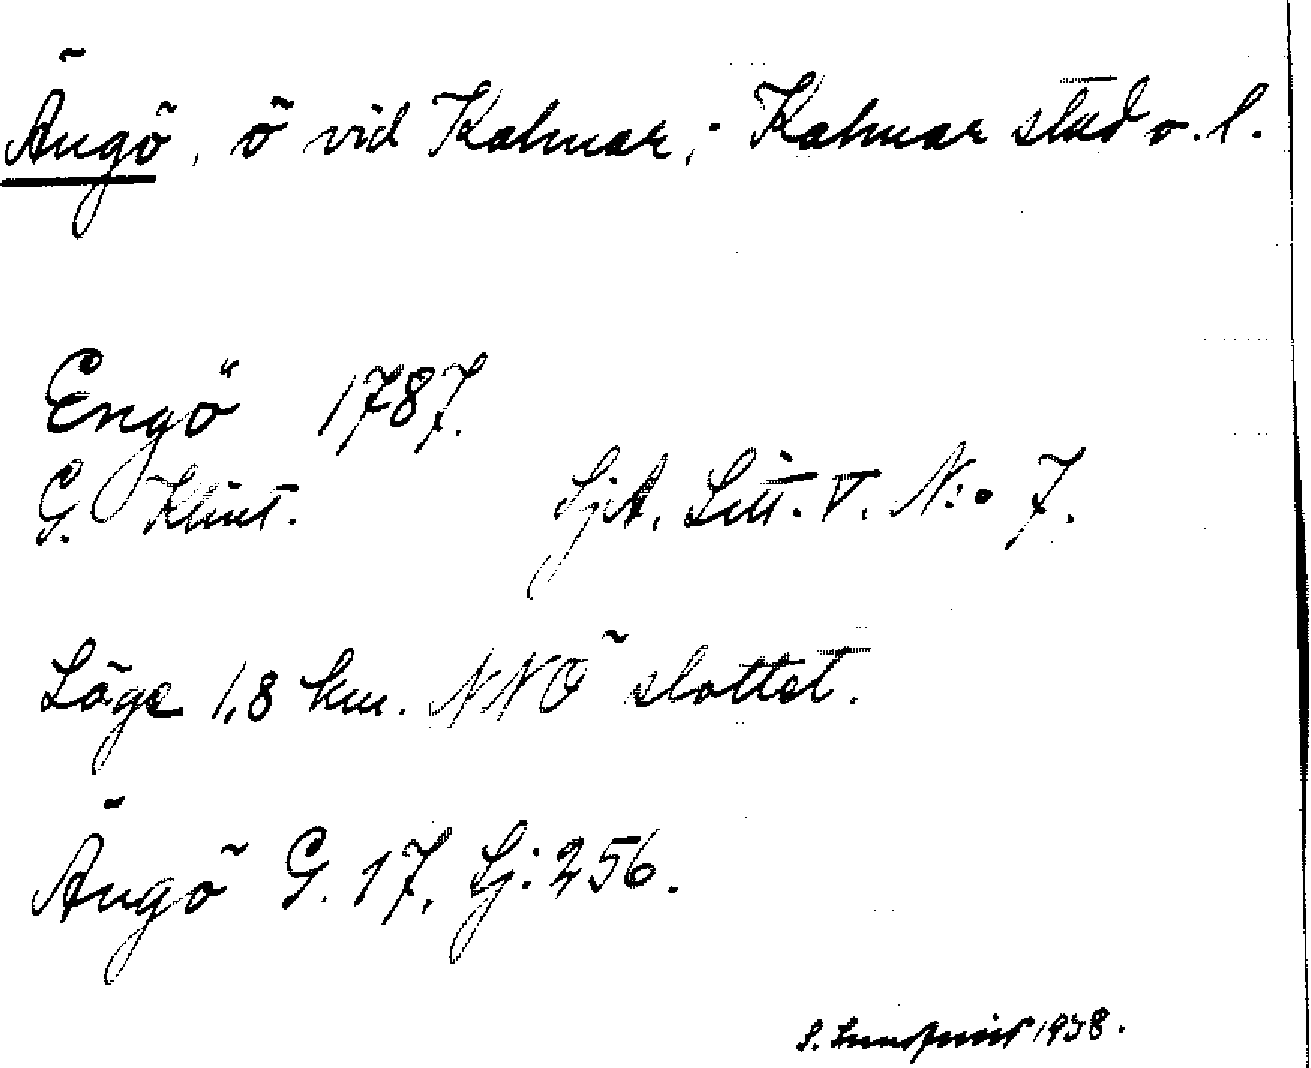 Ängö, ö vid Kalmar, Kalmar stad o. l.
Engö 1787.
G. Klint. SjA. Litt. V. N:o 7.
Läge 1,8 km. NNÖ slottet.
Ängö G. 17, Sj. 256.
S. Lundqvist 1938.